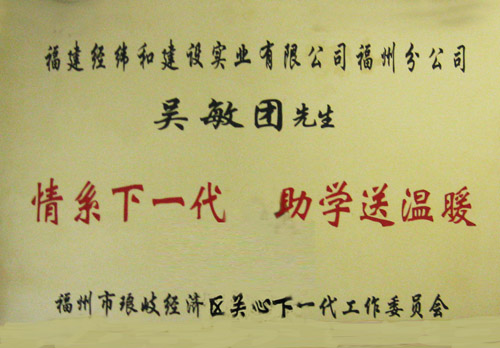 福建经纬和建设实业有限公司福州分公司
吴敏团先生
情系下一代 助学送温暖
福州市琅岐经济区关心下一代工作委员会